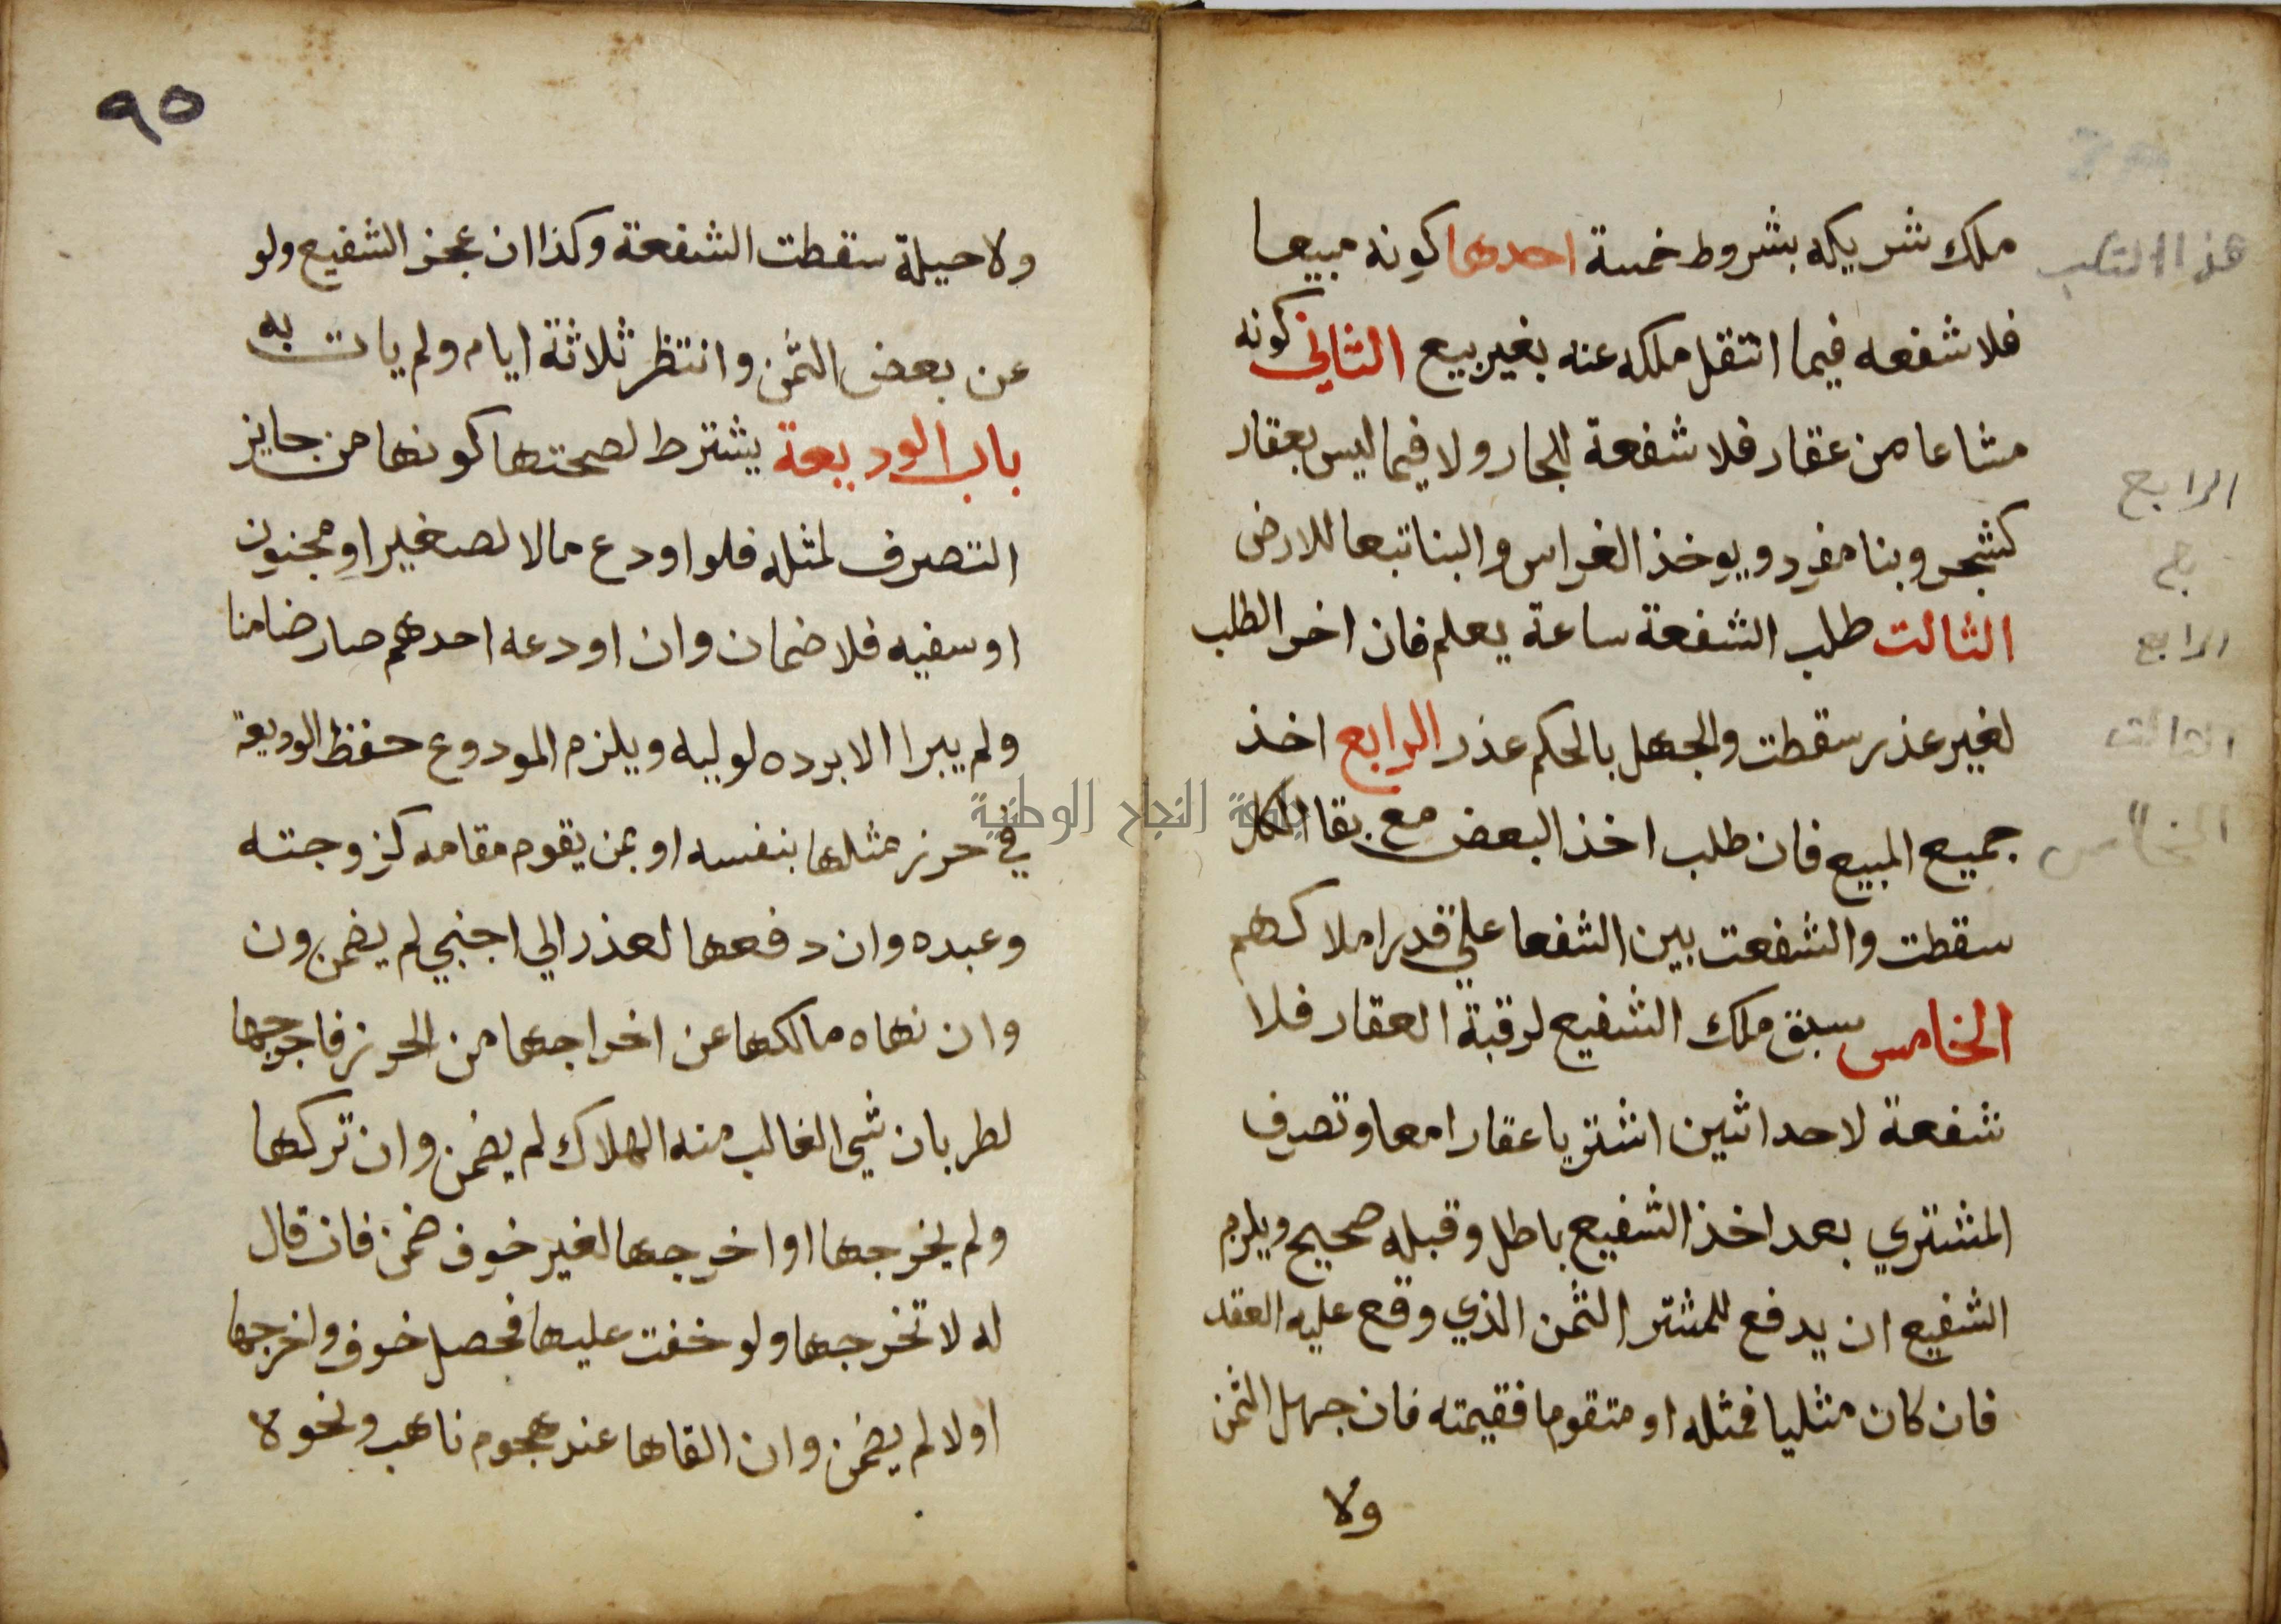 ملك شريكه بشروط خمسة احدها كونه مبيعا
فلا شفعه فيما انتقل ملكه عنه بغير بيع الثاني كونه
مشاعا من عقار فلا شفعة للجار ولا فيما ليس بعقار
كشجر وبنا مفرد ويوخذ الغراس والبنا تبعا للارض
الثالت طلب الشفعة ساعة يعلم فان اخر الطلب
لغير عذر سقطت والجهل بالحكم عذر الرابع اخذ
جميع المبيع فان طلب اخذ البعض مع بقا الكل
سقطت والشفعت بين الشفعا علي قدر املاكهم
الخامس سبق ملك الشفيع لرقبة العقار فلا
شفعة لاحد اثنين اشتريا عقارا معا وتصرف
المشتري بعد اخذ الشفيع باطل وقبله صحيح ويلزم
الشفيع ان يدفع للمشتر الثمن الذي وقع عليه العقد
فان كان مثليا فمثله او متقوما فقيمته فان جهل الثمن
ولا
هذا الكتب
الرابع
الرابع
الثالث
الخامس
٩٥
ولا حيلة سقطت الشفعة وكذا ان عجز الشفيع ولو
عن بعض الثمن وانتظر ثلاثة ايام ولم يات به
باب الوديعة يشترط لصحتها كونها من جايز
التصرف لمثله فلو اودع مالا لصغير او مجنون
او سفيه فلا ضمان وان اودعه احدهم صار ضامنا
ولم يبرا الا برده لوليه ويلزم المودوع حفظ الوديعة
في حرز مثلها بنفسه او بمن يقوم مقامه كزوجته
وعبده وان دفعها لعذر الي اجنبي لم يضمن ون
وان نهاه مالكها عن اخراجها من الحرز فاخرجها
لطربان شي الغالب منه الهلاك لم يضمن وان تركها
ولم يخرجها او اخرجها لغير خوف ضمن فان قال
له لا تخرجها ولو خفت عليها فحصل خوف واخرجها
اولا لم يضمن وان القاها عند هجوم ناهب ونحوه
جامعة النجاح الوطنية